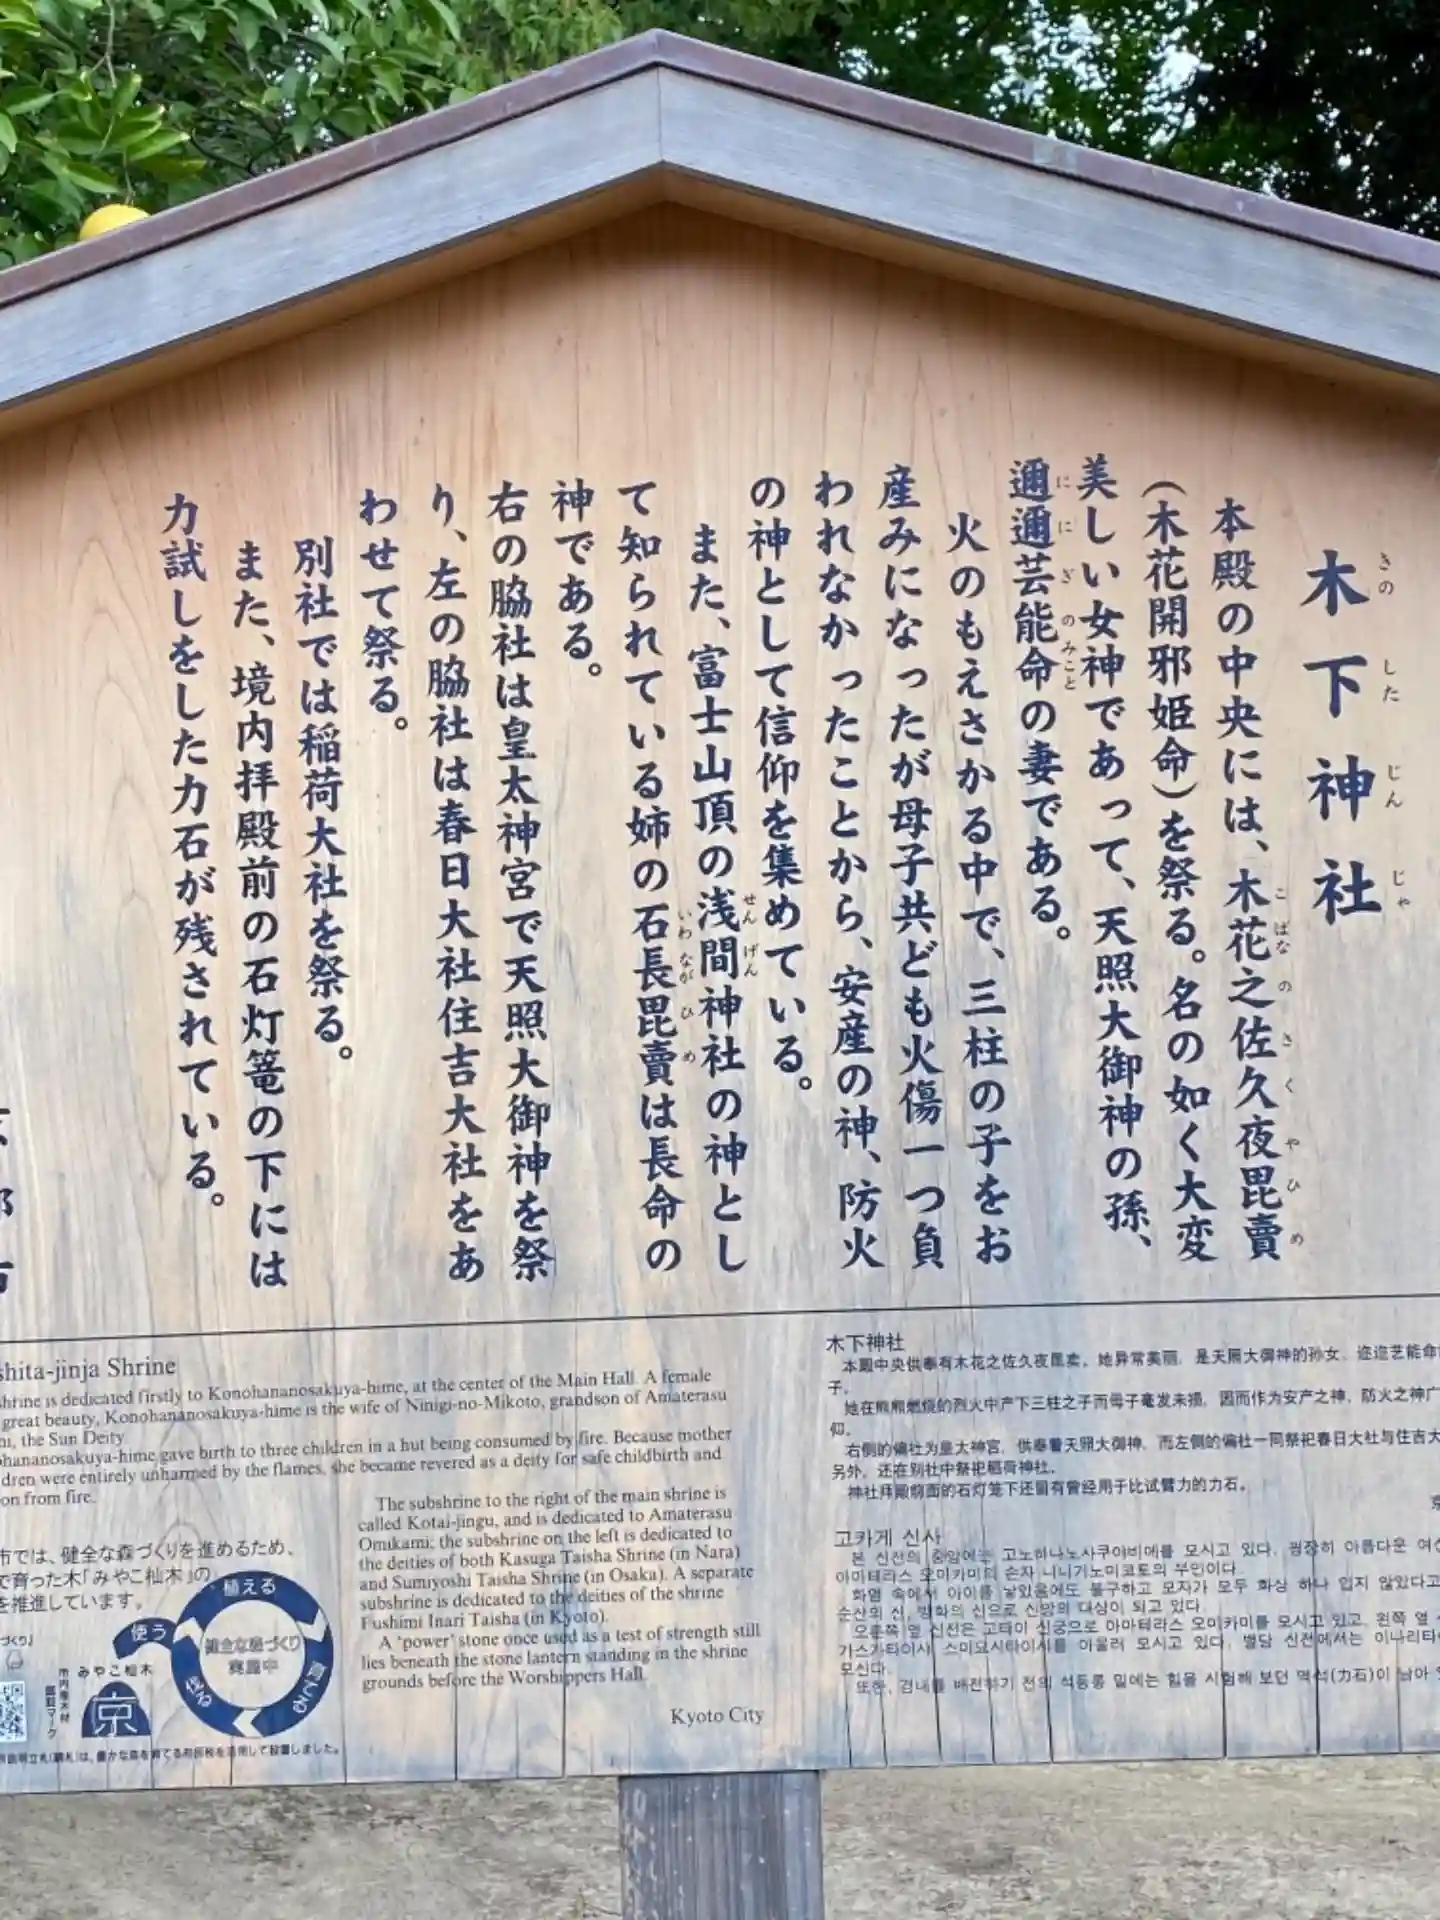 木下神社
きのしたじんじゃ
本殿の中央には、木花之佐久夜毘賣
こばなのさくやひめ
(木花開邪姫命)を祭る。名の如く大変
美しい女神であって、天照大御神の孫、
邇邇芸能命の妻である。
ににぎのみこと
火のもえさかる中で、三柱の子をお
産みになったが母子共ども火傷一つ負
われなかったことから、安産の神、防火
の神として信仰を集めている。
また、富士山頂の浅間神社の神とし
せんげん
て知られている姉の石長毘賣は長命の
いわながひめ
神である。
右の脇社は皇太神宮で天照大御神を祭
り、左の脇社は春日大社住吉大社をあ
わせて祭る。
別社では稲荷大社を祭る。
また、境内拝殿前の石灯篭の下には
力試しをした力石が残されている。
shita-jinja Shrine
shrine is dedicated firstly to Konohananosakuya-hime, at the center of the Main Hall. A female
great beauty, Konohananosakuya-hime is the wife of Ninigi-no-Mikoto, grandson of Amaterasu
the Sun Deity
ohananosakuya-hime gave birth to three children in a hut being consumed by fire. Because mother
dren were entirely unharmed by the flames, she became revered as a deity for safe childbirth and
on from fire.
The subshrine to the right of the main shrine is
called Kotai-jingu, and is dedicated to Amaterasu
Omikami; the subshrine on the left is dedicated to
the deities of both Kasuga Taisha Shrine (in Nara)
and Sumiyoshi Taisha Shrine (in Osaka). A separate
subshrine is dedicated to the deities of the shrine
Fushimi Inari Taisha (in Kyoto).
A 'power' stone once used as a test of strength still
lies beneath the stone lantern standing in the shrine
grounds before the Worshippers Hall.
Kyoto City
市では、健全な森づくりを進めるため、
で育った木「みやこ杣木」の
を推進しています。
植える
育てる
使う
健全な森づくり
実践中
みやこ杣木
京
木下神社
本殿中央供奉有木花之佐久夜毘卖。她异常美丽，是天照大御神的孙女、迩迩艺能命
子。
她在熊熊燃烧的烈火中产下三柱之子而母子毫发未损，因而作为安产之神、防火之神广
仰。
右侧的偏社为皇太神宫，供奉着天照大御神，而左侧的偏社一同祭祀春日大社与住吉大
另外，还在别社中祭祀稻荷神社。
神社拜殿前面的石灯笼下还留有曾经用于比试臂力的力石。
고카게 신사
본 신전의 중앙에는 고노하나노사쿠야비메를 모시고 있다. 굉장히 아름다운 여신
아마테라스 오미카미의 손자 니니기노미코토의 부인이다.
화염 속에서 아이를 낳았음에도 불구하고 모자가 모두 화상 하나 입지 않았다고
순산의 신, 방화의 신으로 신앙의 대상이 되고 있다.
오른쪽 옆 신전은 고타이 신궁으로 아마테라스 오미카미를 모시고 있고, 왼쪽 옆
가스가타이샤, 스미요시타이샤를 아울러 모시고 있다. 별당 신전에서는 이나리타이
모신다.
또한, 경내를 배전하기 전의 석등롱 밑에는 힘을 시험해 보던 역석(力石)이 남아